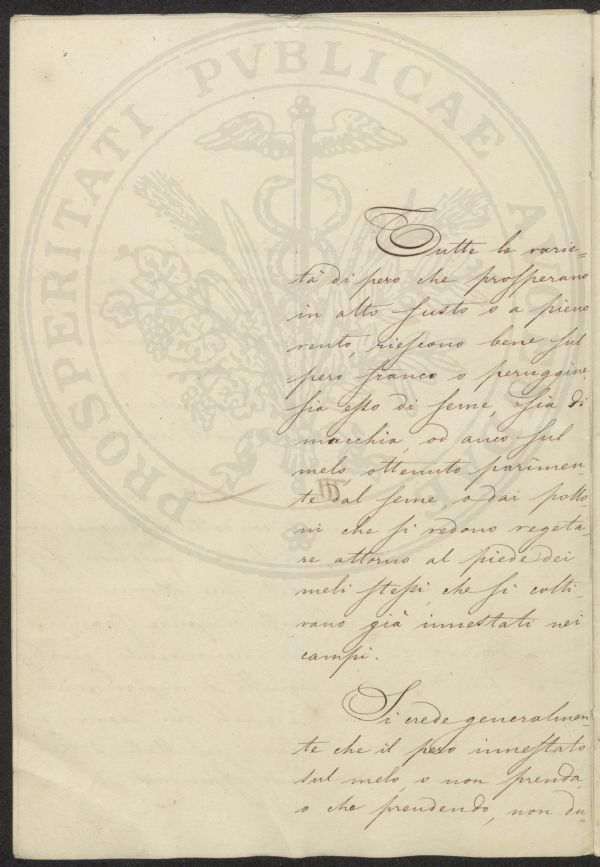 PROSPERITATI PVBLICAE
Tutte le varie=
tà di pero che prosperano
in alto fusto o a pieno
vento, riescono bene sul
pero franco o peruggine
sia esso di seme, sia di
macchia, od anco sul
melo, ottenuto parimen=
te dal seme, o dai pollo=
ni che si vedono vegeta=
re attorno al piede dei
meli stessi, che si colti=
vano già innestati nei
campi.
Si crede generalmen=
te che il pero innestato
sul melo, o non prenda,
o che prendendo, non du=